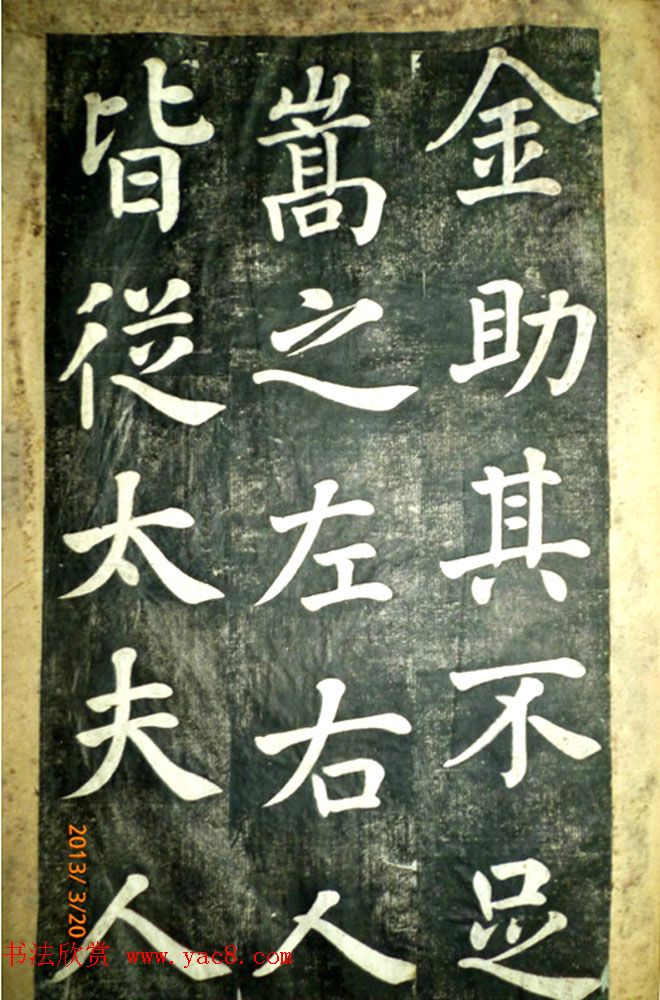 金助其不足
嵩之左右人
皆從太夫人
2013/ 3/20
书法欣赏 www.yac8.com